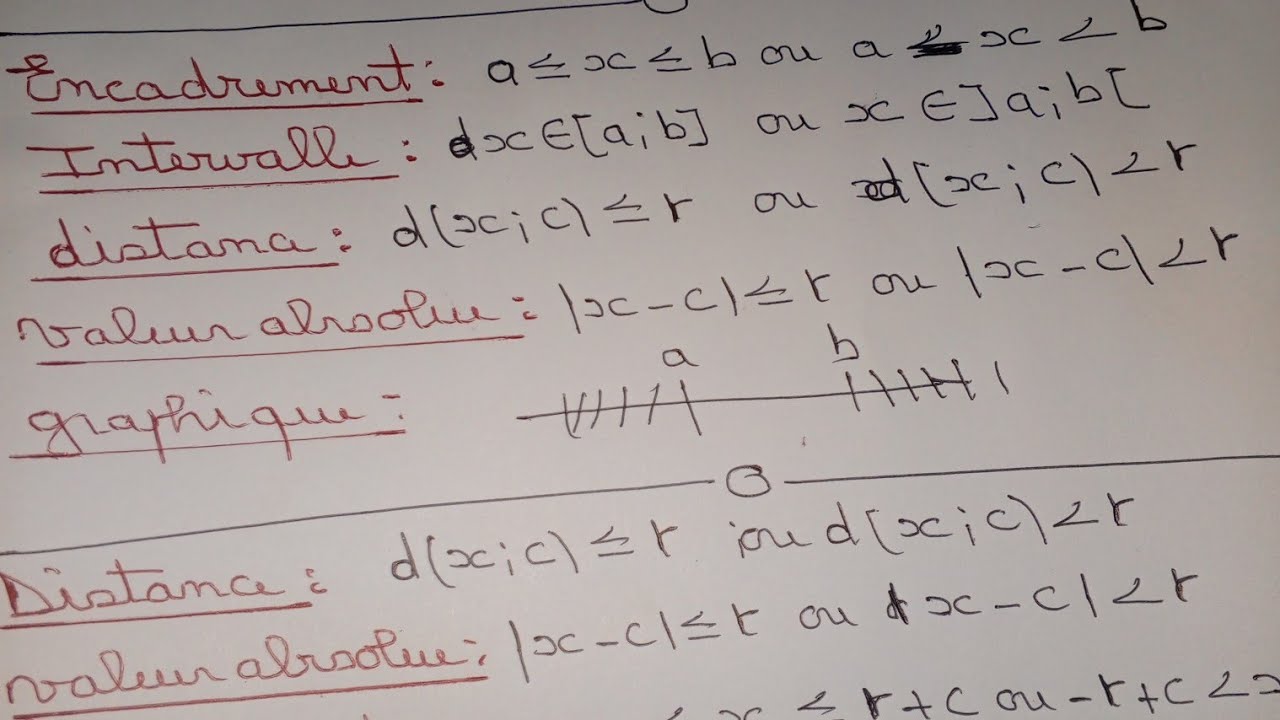 Encadrement: a ≤ x ≤ b ou a < x < b
Intervalle: x ∈ [a;b] ou x ∈ ]a;b[
distance: d(x;c) ≤ r ou d(x;c) < r
valeur absolue: |x-c| ≤ r ou |x-c| < r
a b
graphique:
Distance: d(x;c) ≤ r ou d(x;c) < r
valeur absolue: |x-c| ≤ r ou |x-c| < r
≤ x ≤ r+c ou -r+c < x